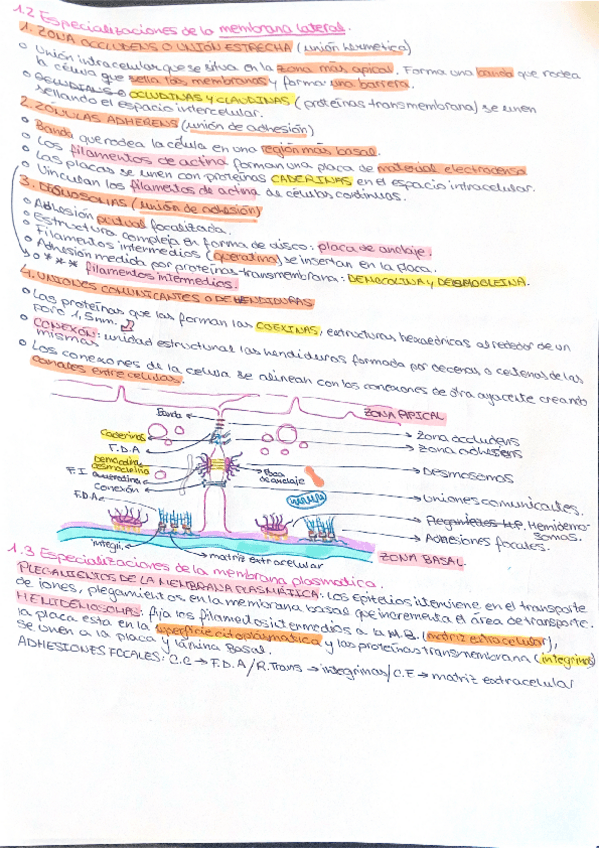 1.2 Especializaciones de la membrana lateral.
1. ZONA OCCLUDENS O UNIÓN ESTRECHA (unión hermética)
o Unión intracelular que se situa en la zona más apical. Forma una banda que rodea
la célula que sella las membranas y forma una barrera.
o OCLUDINAS Y CLAUDINAS (proteínas transmembrana) se unen
sellando el espacio intercelular.
2. ZÓNULAS ADHERENS (unión de adhesión)
o Banda que rodea la célula en una región más basal.
o Los filamentos de actina forman una placa de material electrodensa
o Las placas se unen con proteínas CADERINAS en el espacio intracelular.
o Vinculan los filamentos de actina de células continuas.
3. DESMOSOMAS (unión de adhesión)
o Adhesión puntual focalizada.
o Estructura compleja en forma de disco: placa de anclaje.
o Filamentos intermedios (queratina) se insertan en la placa.
o Adhesión mediada por proteínas transmembrana: DEMOCOLINA Y DESMOGLEINA.
o *** filamentos intermedios.
4. UNIONES COMUNICANTES O DE HENDIDURAS
o Las proteínas que las forman las COEXINAS, estructuras hexaedricas alrededor de un
poro 1,5mm.
o CONEXÓN: unidad estructural las hendiduras formada por decenas o centenas de las
mismas
o Los conexones de la celula se alinean con los conexones de otra adyacente creando
canales entre celulas.
Banda
ZONA APICAL
Caderinas
Zona occludens
F.D.A
Zona adhesens
Democolina
desmogleina
F.I
queratina
Placa de anclaje
Desmosomas
Conexón
Uniones comunicantes.
F.D.A
Plegamientos M.P. Hemidesmosomas.
Adhesiones focales.
integri.
matriz extracelular
ZONA BASAL
1.3 Especializaciones de la membrana plasmática.
PLEGAMIENTOS DE LA MEMBRANA PLASMÁTICA: Los Epitelios interviene en el transporte
de iones, plegamientos en la membrana basal que incrementa el área de transporte.
HEMIDEMOSOMAS: fija los filamedos intermedios a la M.B. (matriz extracelular),
la placa esta en la superficie citoplásmatica y las proteínas transmembrana (integrinas)
se unen a la placa y lámina Basal.
ADHESIONES FOCALES: C.C → F.D.A/R.Trans → integrinas/C.E → matriz extracelular